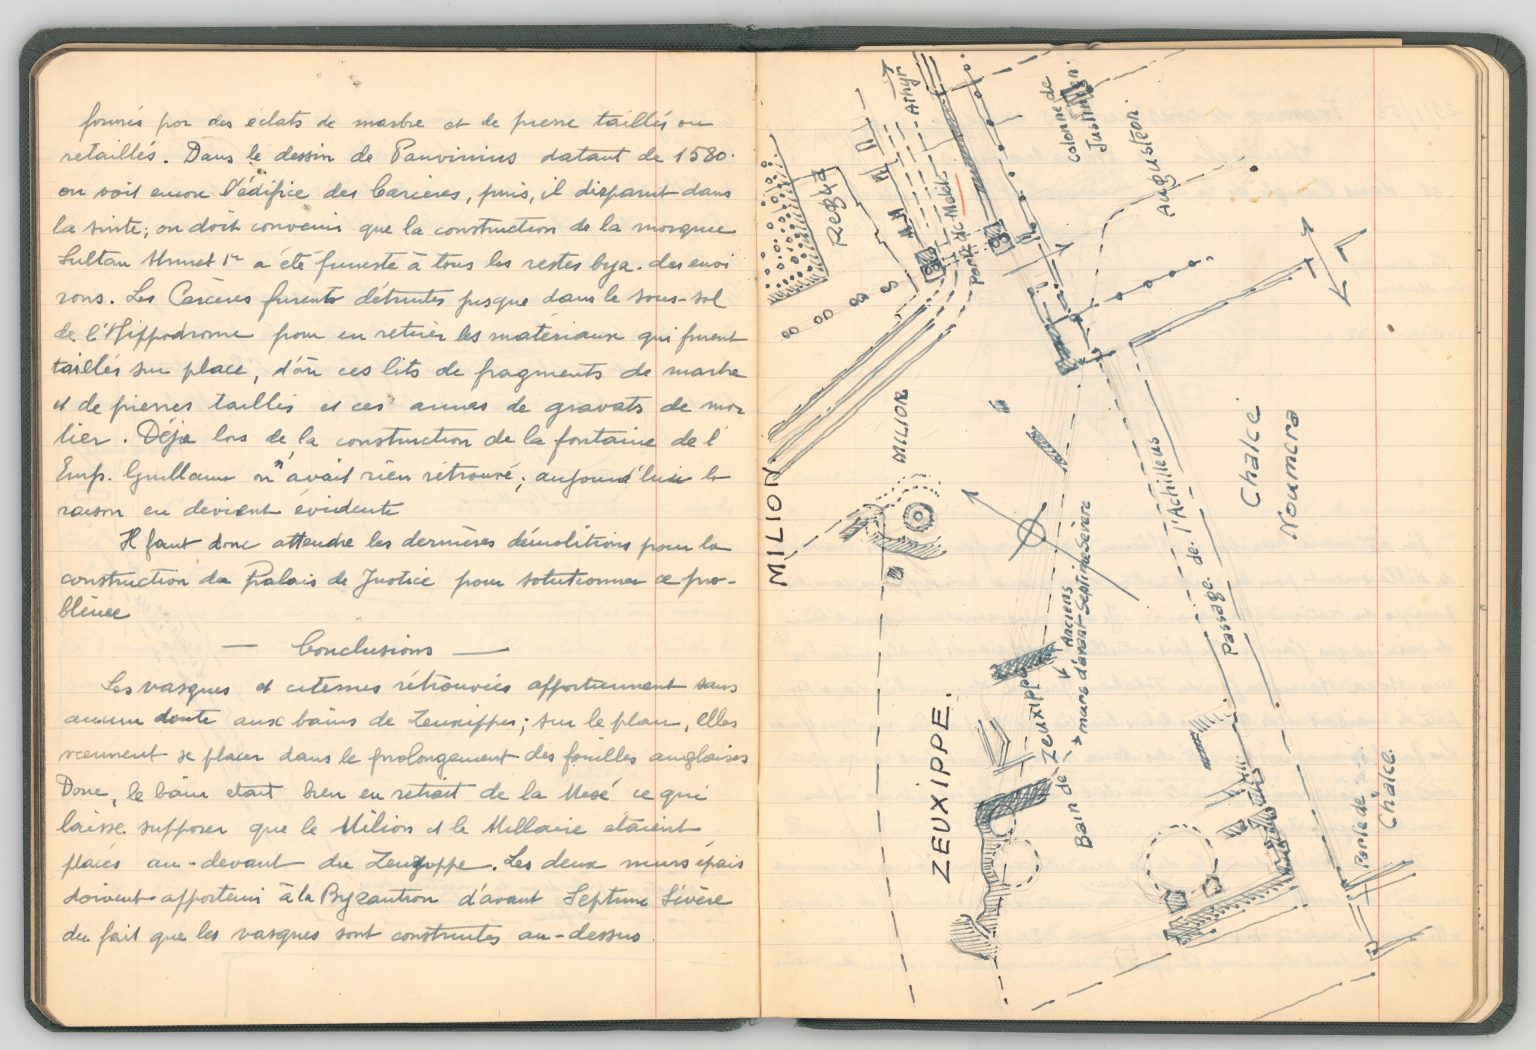 formés par des éclats de marbre et de pierre taillés ou
retaillés. Dans le dessin de Panvinius datant de 1580.
on voit encore l'édifice des Carcères, puis, il disparut dans
la suite; on doit convenir que la construction de la mosquée
Sultan Ahmet 1er a été funeste à tous les restes byz. des envi
rons. Les Carcères furent détruites jusque dans le sous-sol
de l'Hippodrome pour en retirer les matériaux qui furent
taillés sur place, d'où ces lits de fragments de marbre
et de pierres taillés et ces amas de gravats de mor
tier. Déja lors de la construction de la fontaine de l'
Emp. Guillaume on n'avait rien retrouvé; aujourd'hui la
raison en devient évidente
Il faut donc attendre les dernières démolitions pour la
construction du Palais de Justice pour solutionner ce pro-
blème
— Conclusions —
Les vasques et citernes rétrouvées appartiennent sans
aucun doute aux bains de Zeuxippes; sur le plan, elles
viennent se placer dans le prolongement des fouilles anglaises
Donc, le bain etait bien en retrait de la Mesé ce qui
laisse supposer que le Milion et le Millaire etaient
placés au-devant du Zeuxippe. Les deux murs épais
doivent appartenir à la Byzantion d'avant Septime Sévère
du fait que les vasques sont construites au-dessus
MILION
Regia
Porte de Melete
colonne de
Justinien.
Augustéon.
MILION
Chalcé
Noumera
Passage de l'Achilleus
ZEUXIPPE.
Bain de Zeuxippe
Anciens
murs d'avant Septime Sévère
Porte de
Chalcé.